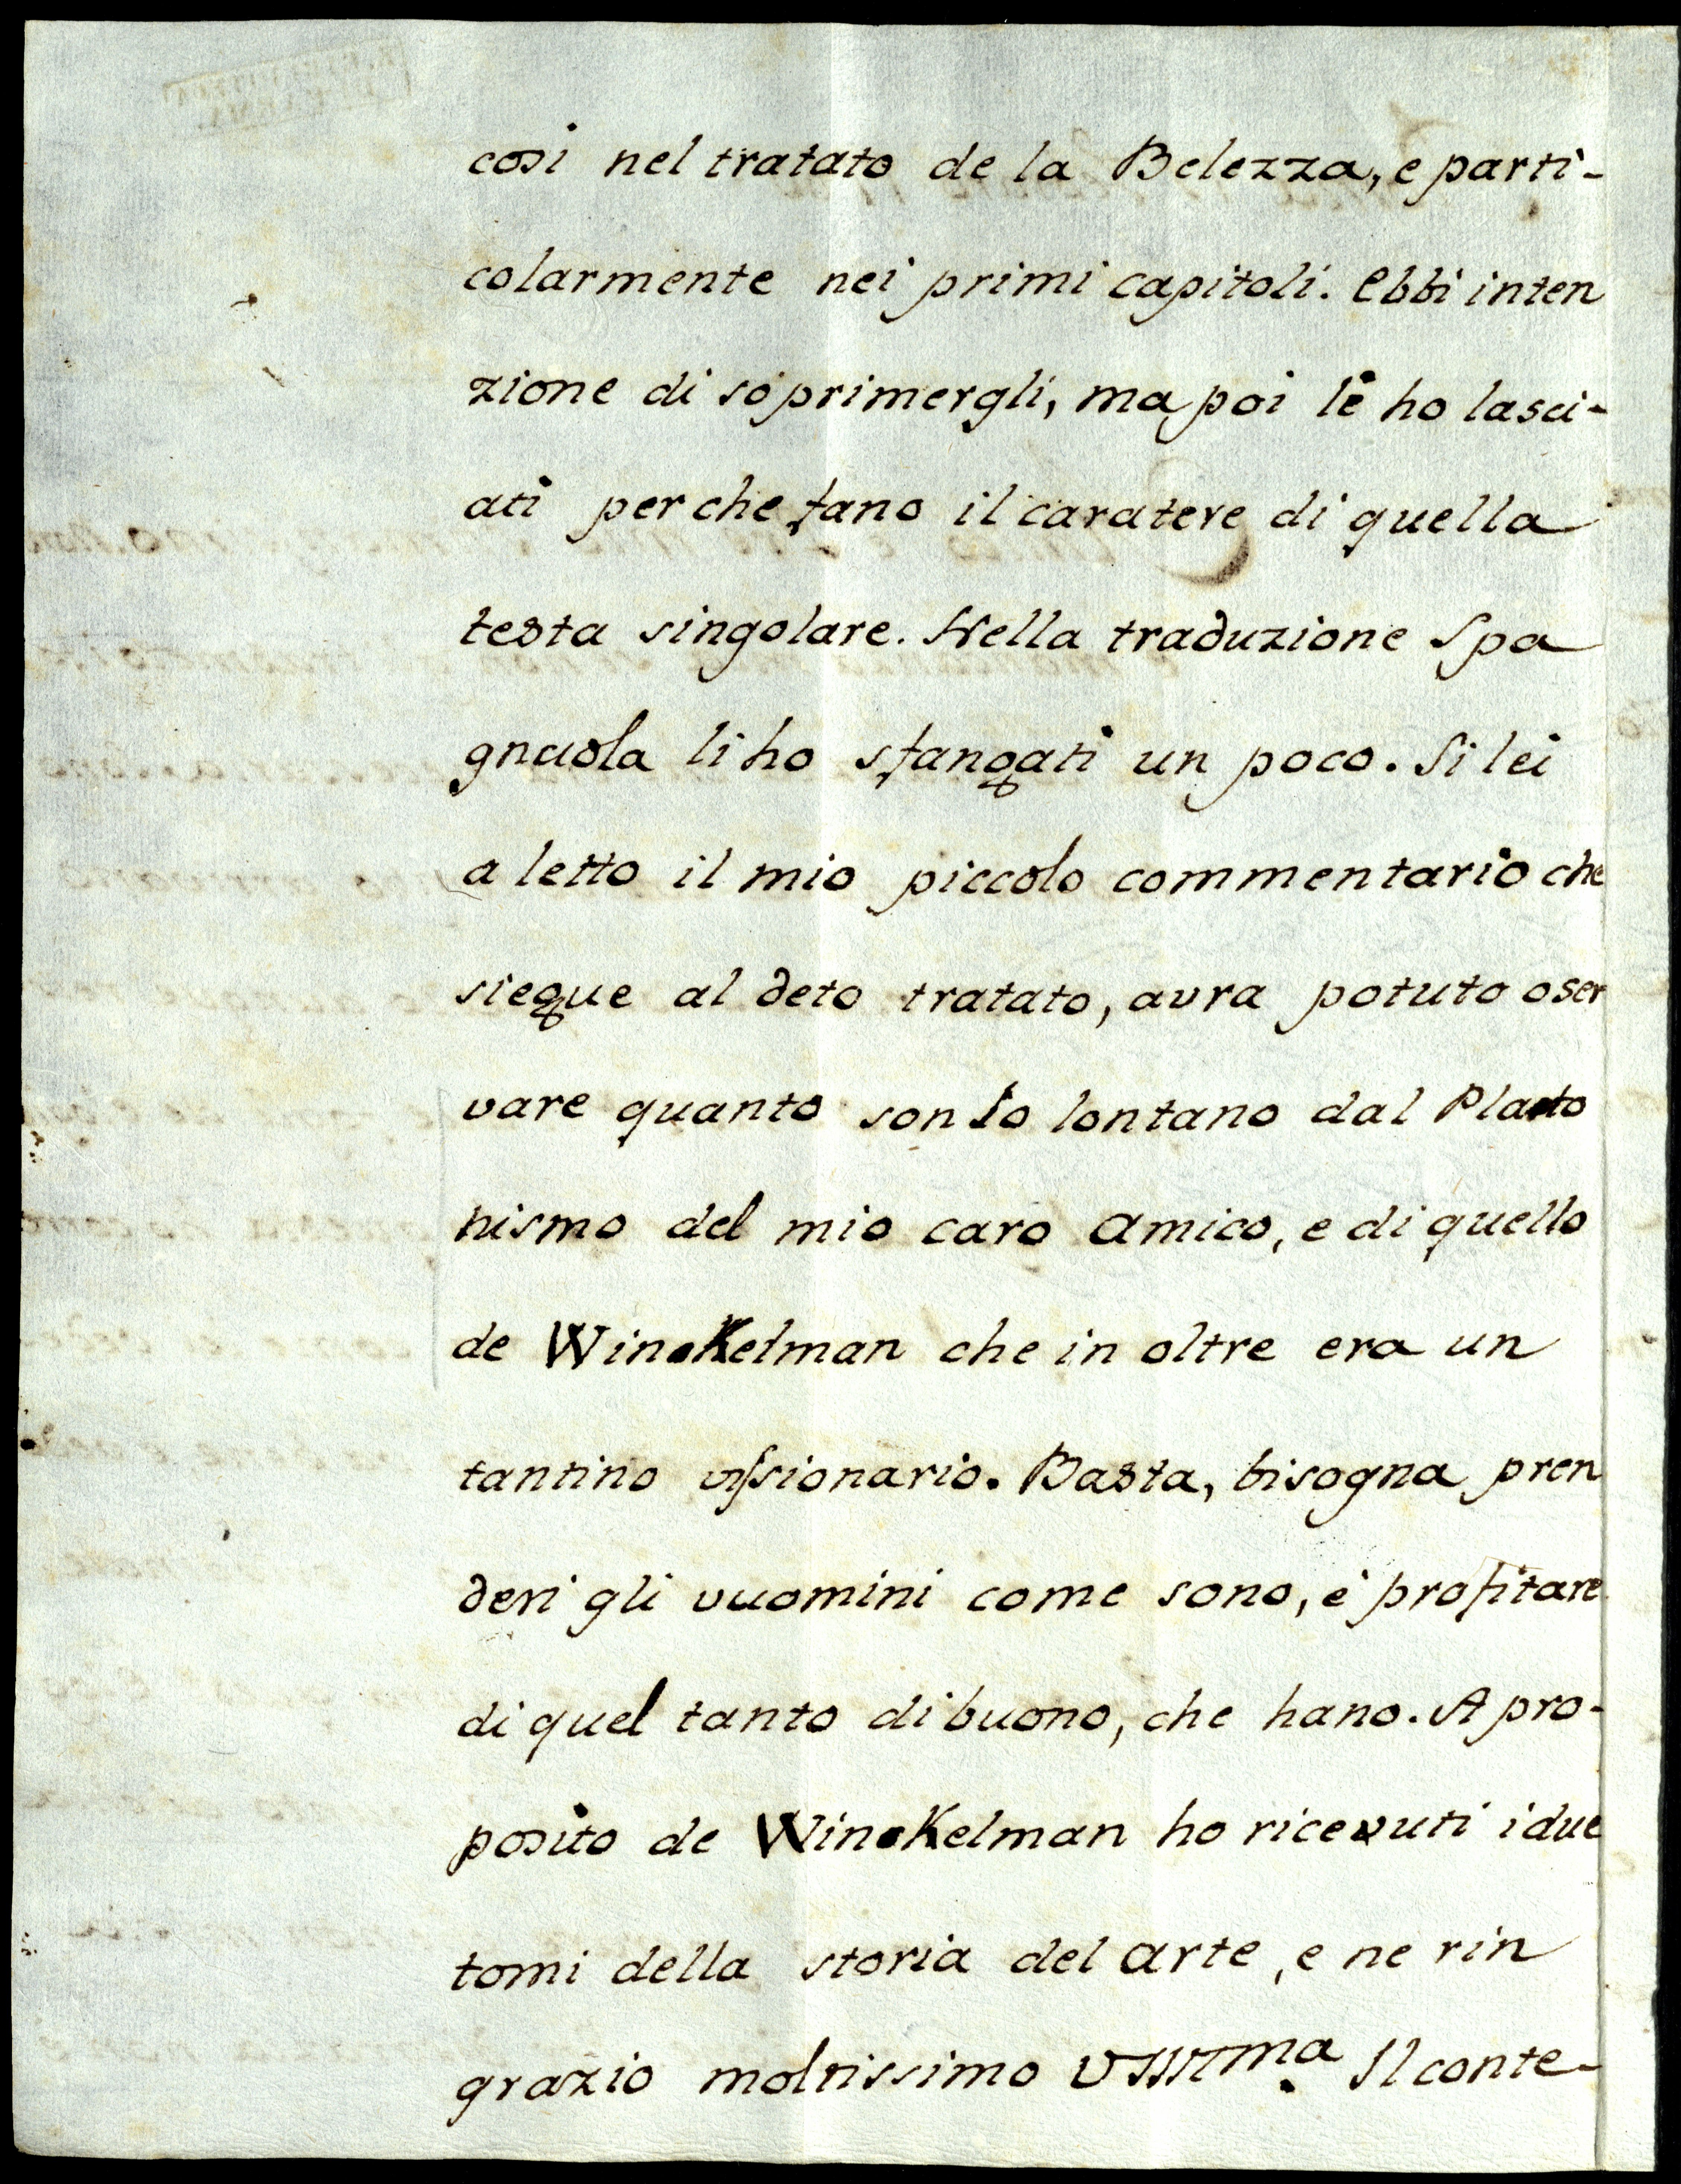 cosi nel tratato de la Belezza, e parti-
colarmente nei primi capitoli. Ebbi inten
zione di soprimergli, ma poi le ho lasci-
ati per che fano il caratere di quella
testa singolare. Nella traduzione Spa
gnuola li ho sfangati un poco. Si lei
a letto il mio piccolo commentario che
siegue al deto tratato, avra potuto oser
vare quanto son Io lontano dal Plato
nismo del mio caro Amico, e di quello
de Winckelman che in oltre era un
tantino vissionario. Basta, bisogna pren
deri gli vuomini come sono, è profitare
di quel tanto di buono, che hano. A pro-
posito de Winckelman ho ricevuti i due
tomi della storia del arte, e ne rin
grazio moltissimo Il conte-